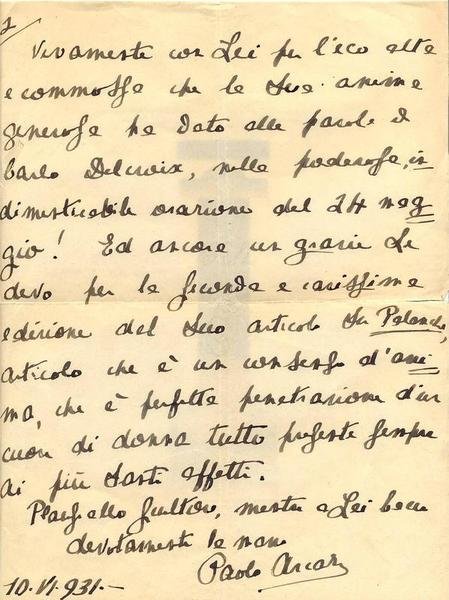 2
Vivamente con Lei per l'eco alta
e commossa che la Sua anima
generosa ha dato alle parole di
Carlo Delcroix, nella poderosa, in
dimenticabile orazione del 24 mag
gio! Ed ancora un grazie Le
devo per la seconda e carissima
edizione del Suo articolo su
articolo che è un consenso d'ani
ma, che è perfetta penetrazione d'un
cuore di donna tutto presente sempre
ai più santi affetti.
mentre a Lei bacio
devotamente la mano
Paolo Arcari
10.VI.931.-